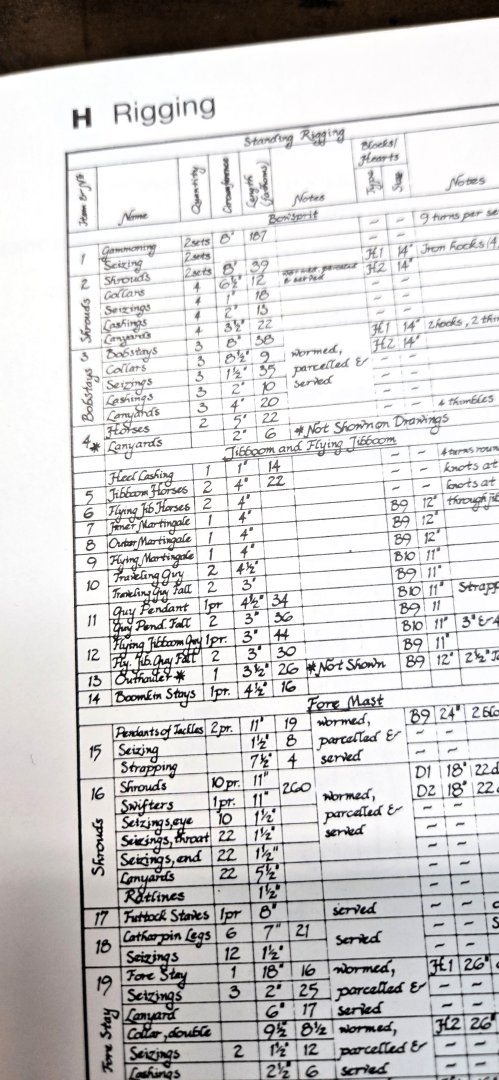 H Rigging
Standing Rigging
Item or Nº Name Quantity Circumference Length (fathoms) Notes Blocks/Hearts Type Size Notes
Bowsprit
1 Gammoning 2sets 8" 187 ~ ~ 9 turns per
Seizing 2sets ~ ~
2 Shrouds 2sets 8" 39 H1 14" Iron hocks (4
Shrouds Collars 4 6½" 12 wormed, parcelled & served H2 14"
Seizings 4 1" 18 ~ ~
Lashings 4 2" 13 ~ ~
Lanyards 4 3½" 22 ~ ~
Bobstays 3 Bobstays 3 8" 38 H1 14" 2 hocks, 2
Collars 3 8½" 9 wormed, H2 14"
Seizings 3 1½" 35 parcelled &
Lashings 3 2" 10 served
Lanyards 3 4" 20
4 Horses 2 5" 22 ~ ~ 4 thimbles
* Lanyards 2" 6 *Not Shown on Drawings
Jibboom and Flying Jibboom
Heel Lashing 1 1" 14 ~ ~ 4 turns
5 Jibboom Horses 2 4" 22 ~ ~ knots at
6 Flying Jib Horses 2 4" ~ ~ knots at
7 Inner Martingale 1 4" B9 12" through
8 Outer Martingale 1 4" B9 12"
9 Flying Martingale 1 4" B9 12"
10 Traveling Guy 2 4½" B10 11"
Traveling Guy Fall 2 3" B9 11"
11 Guy Pendant 1pr 4½" 34 B10 11"
Guy Pend. Fall 2 3" 36 B9 11
12 Flying Jibboom Guy 1pr. 3" 44 B10 11" 3" &
Fly. Jib. Guy Fall 2 3" 30 B9 11"
13 Outhauler * 1 3½" 26 *Not Shown B9 12" 2½"
14 Boomkin Stays 1pr. 4½" 16
Fore Mast
15 Pendants of Tackles 2pr. 11" 19 wormed, B9 24"
Seizing 1½" 8 parcelled & ~ ~
Strapping 7½" 4 served ~ ~
16 Shrouds 10pr. 11" 260 D1 18" 22
Shrouds Swifters 1pr. 11" wormed, D2 18" 22
Seizings, eye 10 1½" parcelled & ~ ~
Seizings, throat 22 1½" served ~ ~
Seizings, end 22 1½" ~ ~
Lanyards 22 5½" ~ ~
Ratlines 1½" ~ ~
17 Futtock Staves 1pr 8" served ~ ~
18 Catharpin Legs 6 7" 21 served ~ ~
Seizings 12 1½" ~ ~
19 Fore Stay 1 18" 16 wormed, H1 26"
Fore Stay Seizings 3 2" 25 parcelled & ~ ~
Lanyard 6" 17 served ~ ~
Collar, double 9½ 8½ wormed, H2 26"
Seizings 2 1½" 12 parcelled & ~ ~
Lashings 2½" 6 served ~ ~